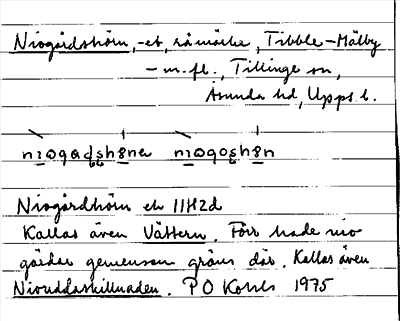 Niogårdshörn, -et, råmärke, Tibble-Mälby
- m.fl., Tillinge sn,
Åsunda hd, Upps. l.
Niogårdhörn ek 11H2d
Kallas även Vättern. Förr hade nio
gårdar gemensam gräns där. Kallas även
Niouddaskillnaden. P O 1975